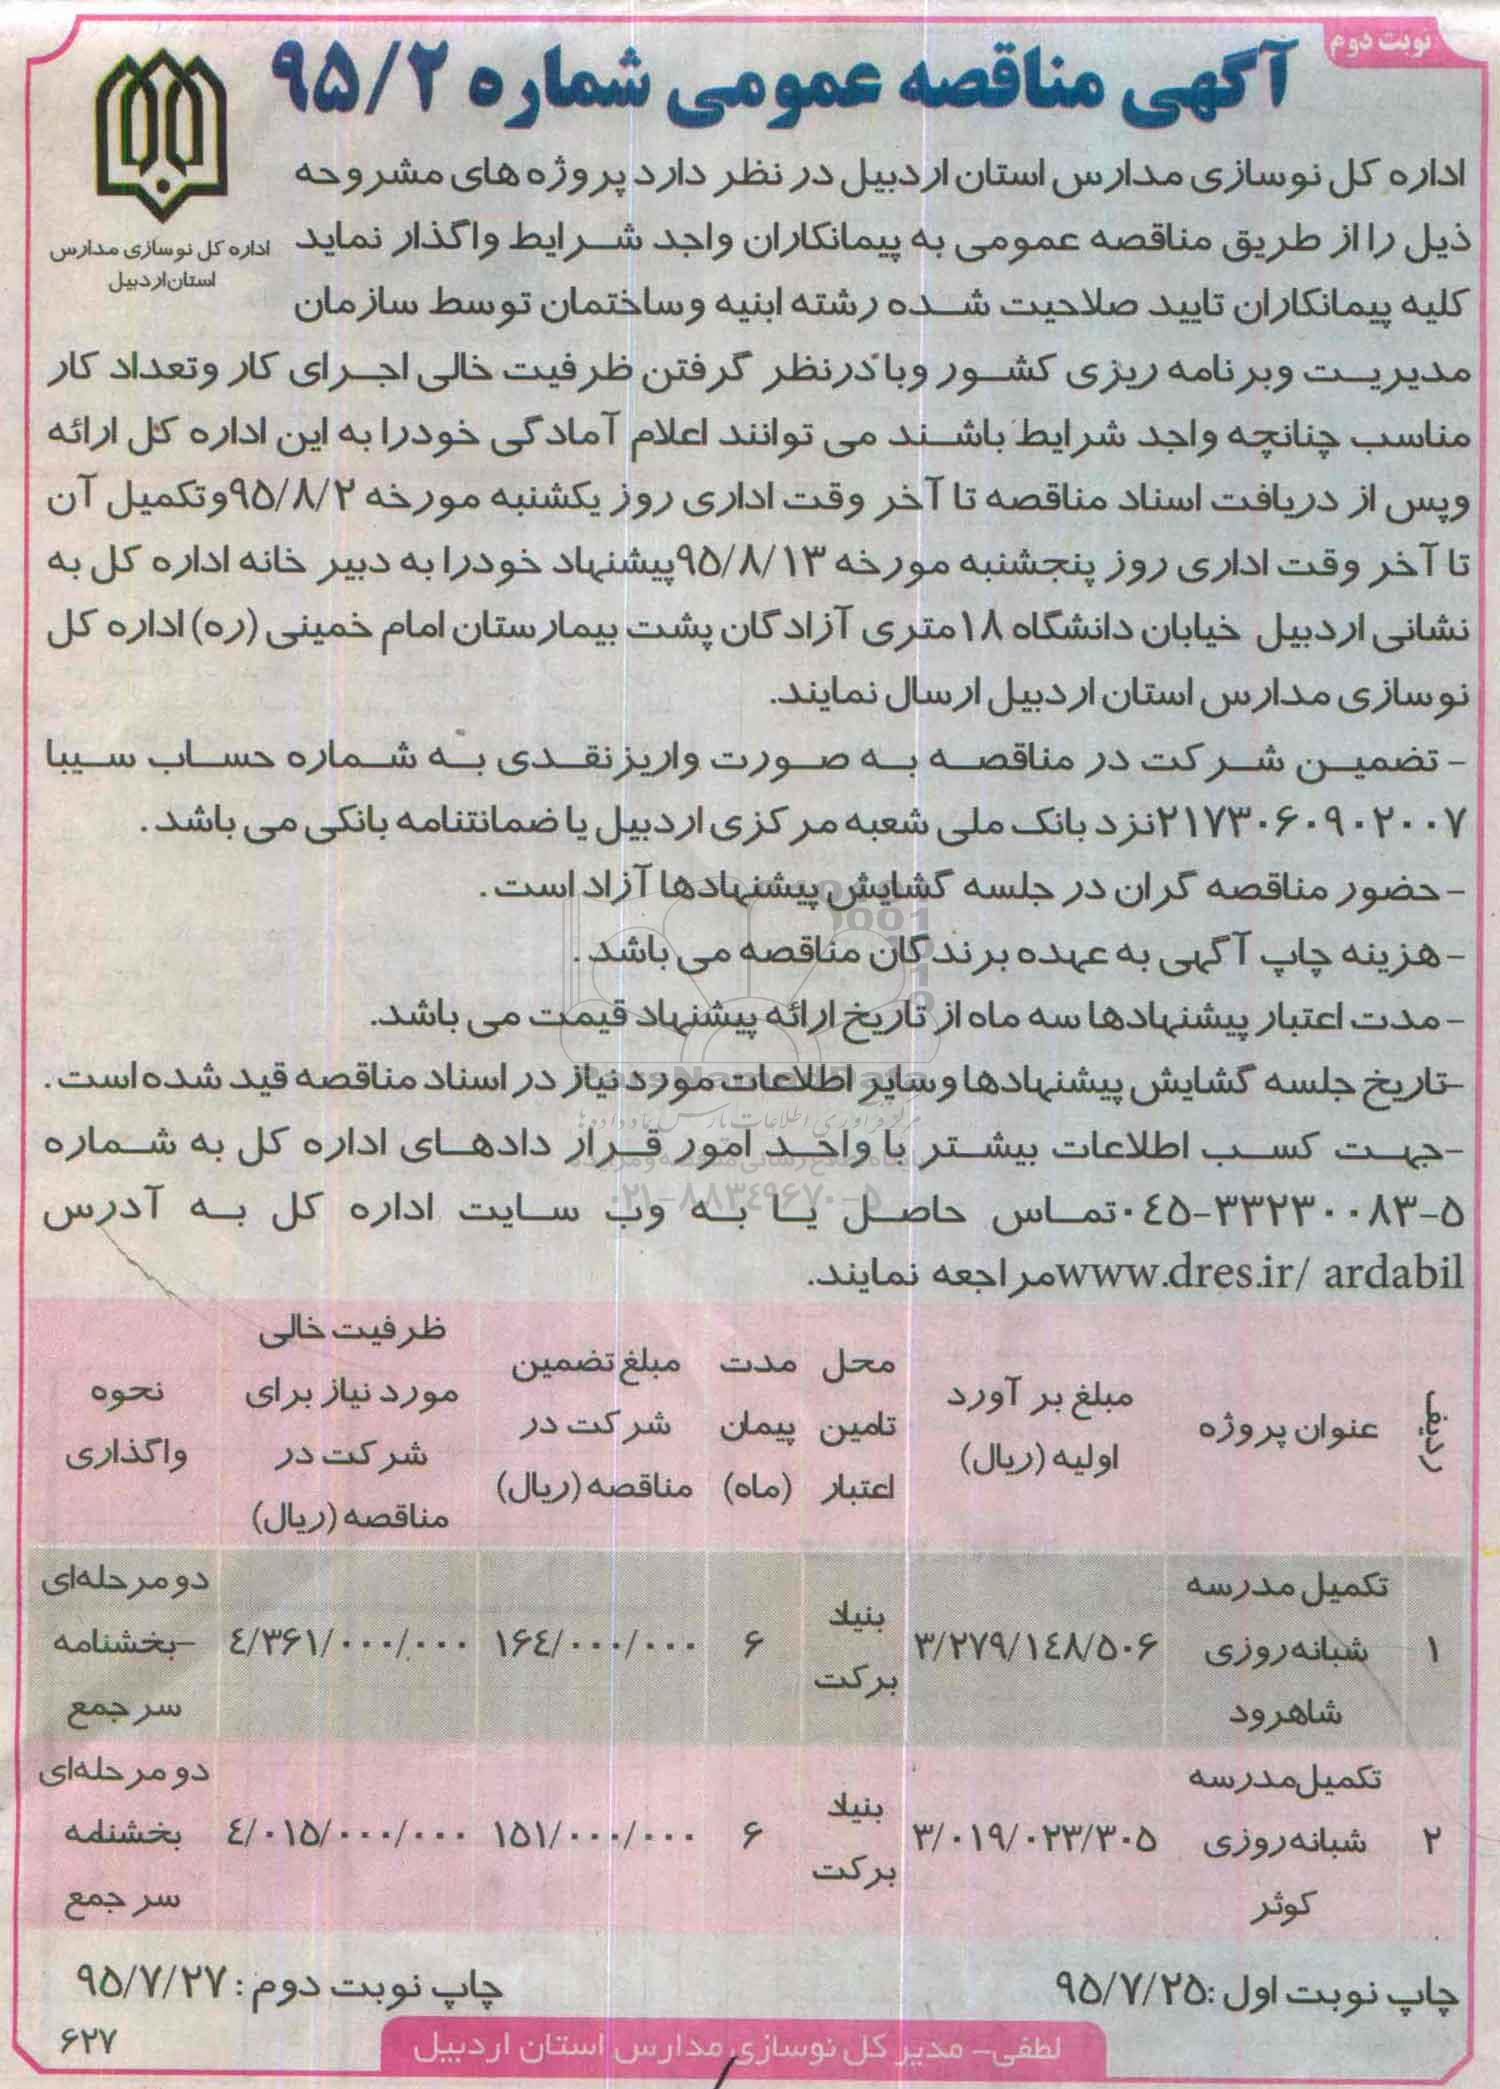 نوبت دوم
آگهی مناقصه عمومی شماره ۹۵/۲
اداره کل نوسازی مدارس
استان اردبیل
اداره کل نوسازی مدارس استان اردبیل در نظر دارد پروژه های مشروحه
ذیل را از طریق مناقصه عمومی به پیمانکاران واجد شرایط واگذار نماید
کلیه پیمانکاران تایید صلاحیت شده رشته ابنیه وساختمان توسط سازمان
مدیریت وبرنامه ریزی کشور وبا درنظر گرفتن ظرفیت خالی اجرای کار وتعداد کار
مناسب چنانچه واجد شرایط باشند می توانند اعلام آمادگی خودرا به این اداره کل ارائه
وپس از دریافت اسناد مناقصه تا آخر وقت اداری روز یکشنبه مورخه ۹۵/۸/۲وتکمیل آن
تا آخر وقت اداری روز پنجشنبه مورخه ۹۵/۸/۱۳پیشنهاد خودرا به دبیر خانه اداره کل به
نشانی اردبیل خیابان دانشگاه ۱۸متری آزادگان پشت بیمارستان امام خمینی (ره) اداره کل
نوسازی مدارس استان اردبیل ارسال نمایند.
- تضمین شرکت در مناقصه به صورت واریزنقدی به شماره حساب سیبا
۲۱۷۳۰۶۰۹۰۲۰۰۷نزد بانک ملی شعبه مرکزی اردبیل یا ضمانتنامه بانکی می باشد.
- حضور مناقصه گران در جلسه گشایش پیشنهادها آزاد است.
- هزینه چاپ آگهی به عهده برندگان مناقصه می باشد.
- مدت اعتبار پیشنهادها سه ماه از تاریخ ارائه پیشنهاد قیمت می باشد.
-تاریخ جلسه گشایش پیشنهادها وسایر اطلاعات مورد نیاز در اسناد مناقصه قید شده است.
-جهت کسب اطلاعات بیشتر با واحد امور قرار دادهای اداره کل به شماره
۰۴۵-۳۳۲۳۰۰۸۳-۵تماس حاصل یا به وب سایت اداره کل به آدرس
www.dres.ir/ ardabilمراجعه نمایند.
۰۲۱-۸۸۳۴۹۶۷۰-۵
ردیف | عنوان پروژه | مبلغ بر آورد اولیه (ریال) | محل تامین اعتبار | مدت پیمان (ماه) | مبلغ تضمین شرکت در مناقصه (ریال) | ظرفیت خالی مورد نیاز برای شرکت در مناقصه (ریال) | نحوه واگذاری
۱ | تکمیل مدرسه شبانه روزی شاهرود | ۳/۲۷۹/۱۴۸/۵۰۶ | بنیاد برکت | ۶ | ۱۶۴/۰۰۰/۰۰۰ | ۴/۳۶۱/۰۰۰/۰۰۰ | دو مرحله‌ای -بخشنامه سر جمع
۲ | تکمیل مدرسه شبانه روزی کوثر | ۳/۰۱۹/۰۲۳/۳۰۵ | بنیاد برکت | ۶ | ۱۵۱/۰۰۰/۰۰۰ | ۴/۰۱۵/۰۰۰/۰۰۰ | دو مرحله‌ای بخشنامه سر جمع
چاپ نوبت اول :۹۵/۷/۲۵
چاپ نوبت دوم : ۹۵/۷/۲۷
لطفی- مدیر کل نوسازی مدارس استان اردبیل
۶۲۷